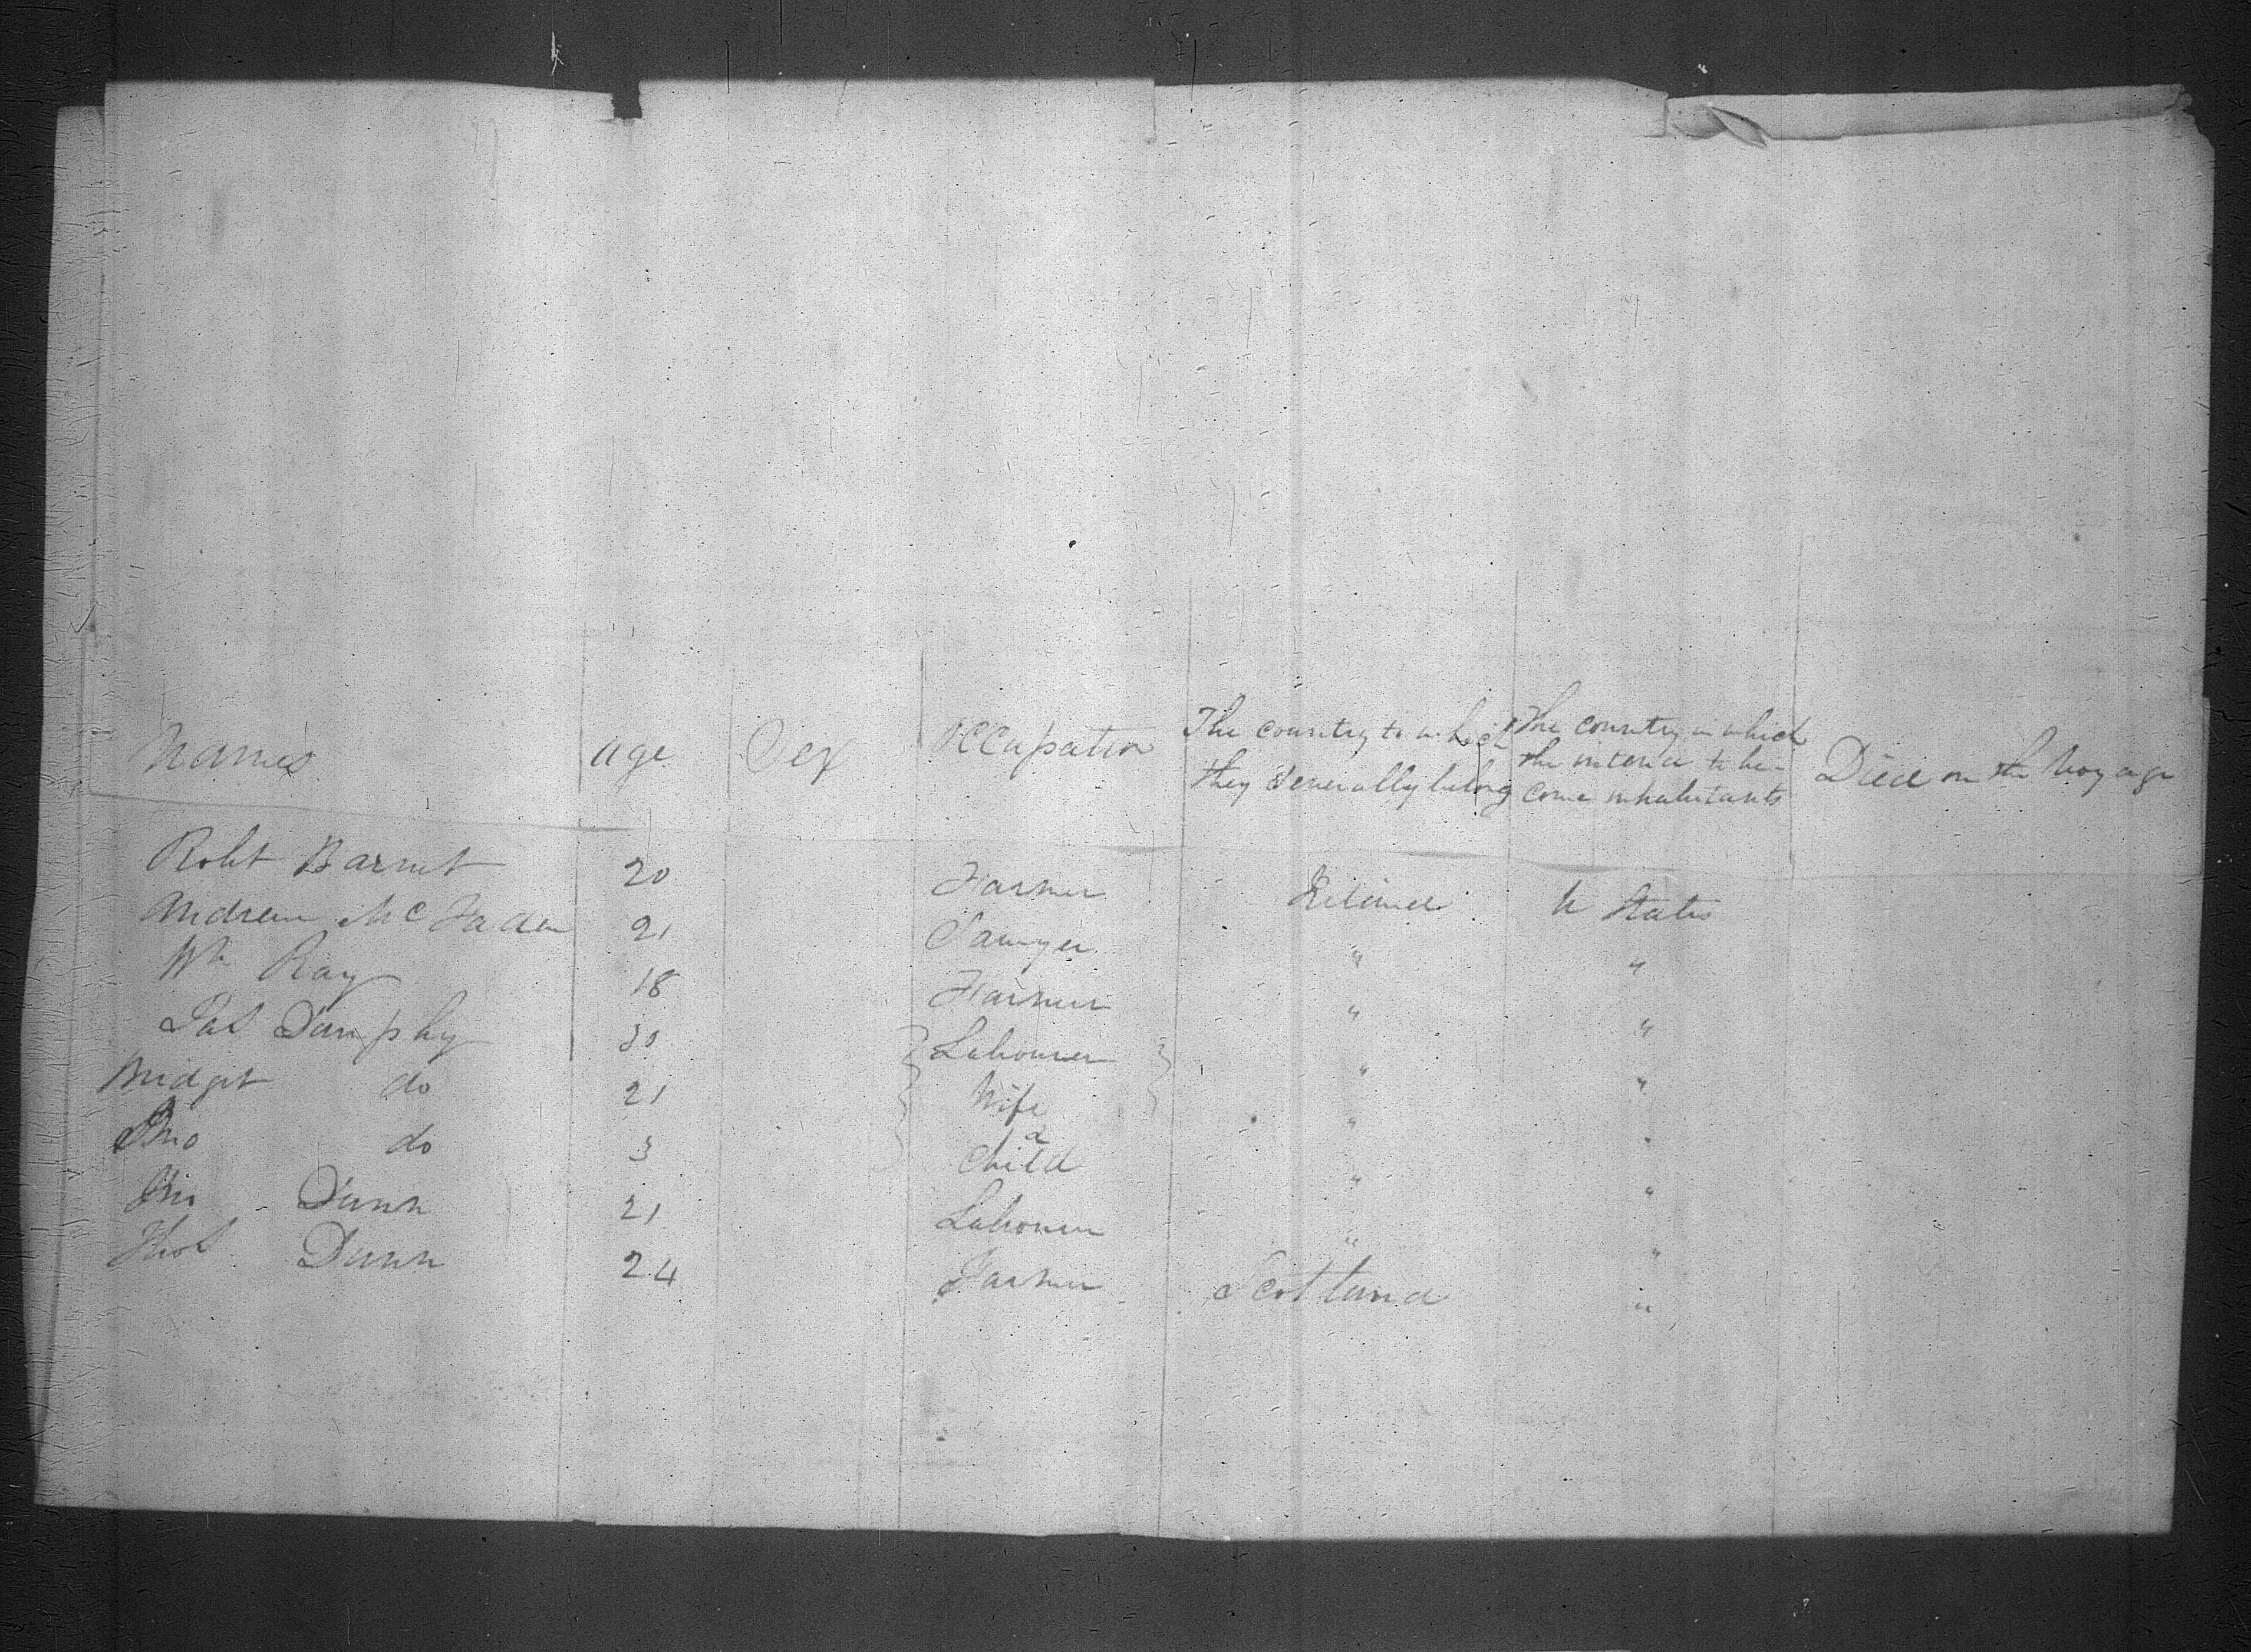 Names age Sex Occupation The country to which they Generally belong The country in which the intend to be-come inhabitants Died on the Voyage
Robt Barnet 20 Farmer Ireland U States
Andrew McFaden 21 Sawyer " "
Wm Ray 18 Farmer " "
Jas Dunphy 30 Labourer " "
Bridget do 21 Wife " "
Jno do 3 & Child " "
Jno Dunn 21 Labourer " "
Thos Dunn 24 Farmer Scotland "